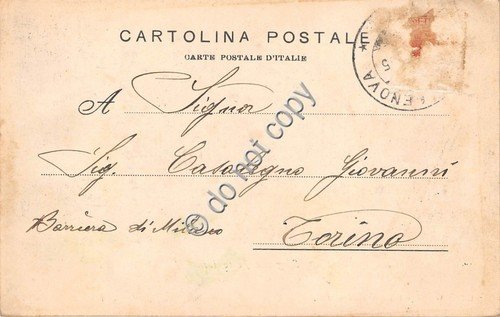 CARTOLINA POSTALE
CARTE POSTALE D'ITALIE
A Signor
Sig. Casalegno Giovanni
Barriera di Milano
Torino
© do not copy